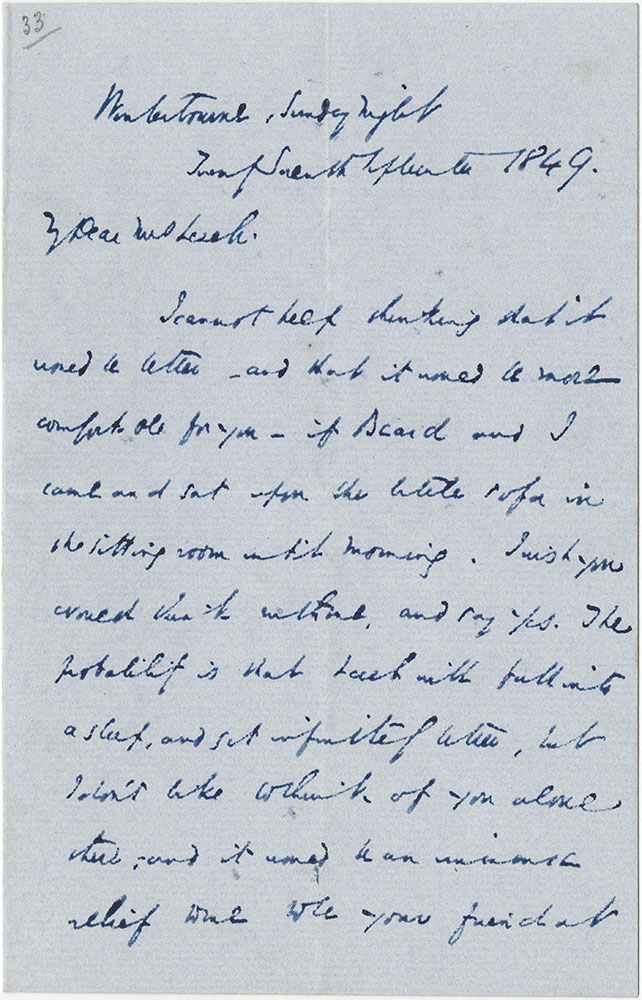 33
Winterbourne, Sunday Night
Twenty Seventh September 1849.
My Dear Mrs Leech.
I cannot help thinking that it
would be better – and that it would be more
comfortable for you – if Beard and I
came and sat upon the little sofa in
the sitting room until morning. I wish you
would think with me, and say yes. The
probability is that Leech will fall into
a sleep, and get infinitely better, but
I don't like to think of you alone
there; and it would be an immense
relief to me to be your friend at